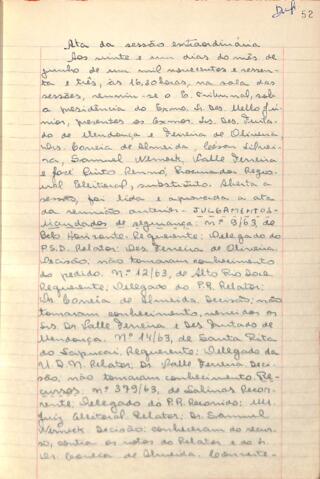 52
Ata da sessão extraordinária
Aos vinte e um dias do mês de
junho de um mil novecentos e sessen-
ta e três, às 16,30 horas, na sala das
sessões, reuniu-se o E. Tribunal, sob
a presidência do Exmo. Sr. Des. Mello Jú-
nior, presentes os Exmos. Srs. Des. Furta-
do de Mendonça e Ferreira de Oliveira,
Drs. Correia de Almeida, César Silvei-
ra, Samuel Werneck, Valle Ferreira
e José Pinto Renno, Procurador Regio-
nal Eleitoral, substituto. Aberta a
sessão, foi lida e aprovada a ata
da reunião anterior. JULGAMENTOS:
Mandados de segurança: nº 8/63, de
Belo Horizonte. Requerente: Delegado do
P.S.D. Relator: Des. Ferreira de Oliveira.
Decisão, não tomaram conhecimento
do pedido. Nº 12/63, de Alto Rio Doce.
Requerente: Delegado do P.R. Relator:
Dr. Correia de Almeida. Decisão, não
tomaram conhecimento, vencidos os
Srs. Dr. Valle Ferreira e Des. Furtado de
Mendonça. Nº 14/63, de Santa Rita
do Sapucaí. Requerente: Delegado da
U.D.N. Relator: Dr. Valle Ferreira. Deci-
são, não tomaram conhecimento. Re-
cursos: nº 379/63, de Salinas. Recor-
rente: Delegado do P.R. Recorrido: MM.
Juiz Eleitoral. Relator: Dr. Samuel
Werneck. Decisão: conheceram do recur-
so, contra os votos do Relator e do Sr.
Dr. Correia de Almeida.